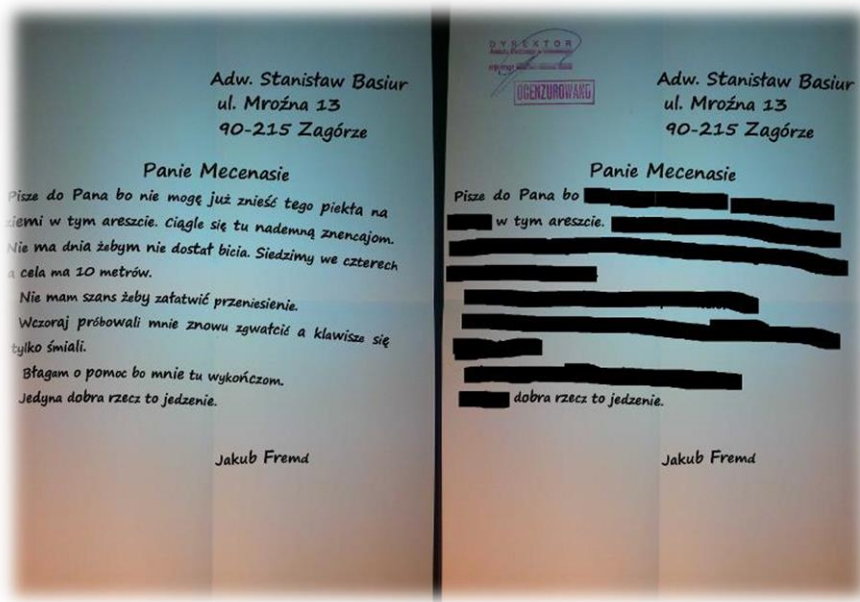 Adw. Stanisław Basiur
ul. Mroźna 13
90-215 Zagórze
Panie Mecenasie
Pisze do Pana bo nie mogę już znieść tego piekła na
ziemi w tym areszcie. Ciągle się tu nademną znencajom.
Nie ma dnia żebym nie dostał bicia. Siedzimy we czterech
a cela ma 10 metrów.
Nie mam szans żeby załatwić przeniesienie.
Wczoraj próbowali mnie znowu zgwałcić a klawisze się
tylko śmiali.
Błagam o pomoc bo mnie tu wykończom.
Jedyna dobra rzecz to jedzenie.
Jakub Fremd
DYREKTOR
OCENZUROWANO
Adw. Stanisław Basiur
ul. Mroźna 13
90-215 Zagórze
Panie Mecenasie
Pisze do Pana bo
w tym areszcie.
dobra rzecz to jedzenie.
Jakub Fremd